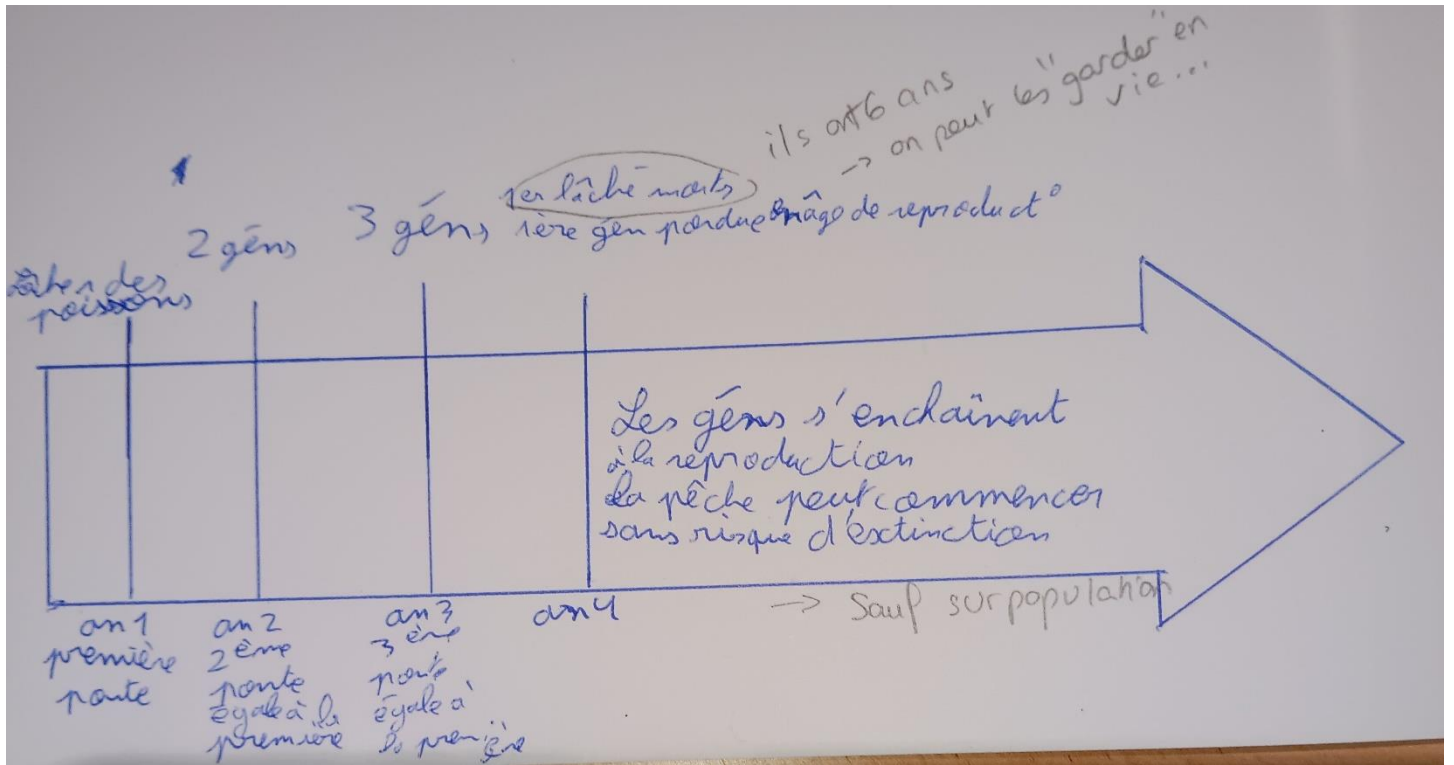 ils ont 6 ans
-> on peut les "garder" en
vie...
1er lâché morts
2 géns
3 géns
1ère gén pondue en âge de reproduct°
Lâcher des
poissons
Les géns s'enchaînent
à la reproduction
la pêche peut commencer
sans risque d'extinction
-> Sauf surpopulation
an 1
première
ponte
an 2
2ème
ponte
égale à la
première
an 3
3ème
ponte
égale à
la première
an 4